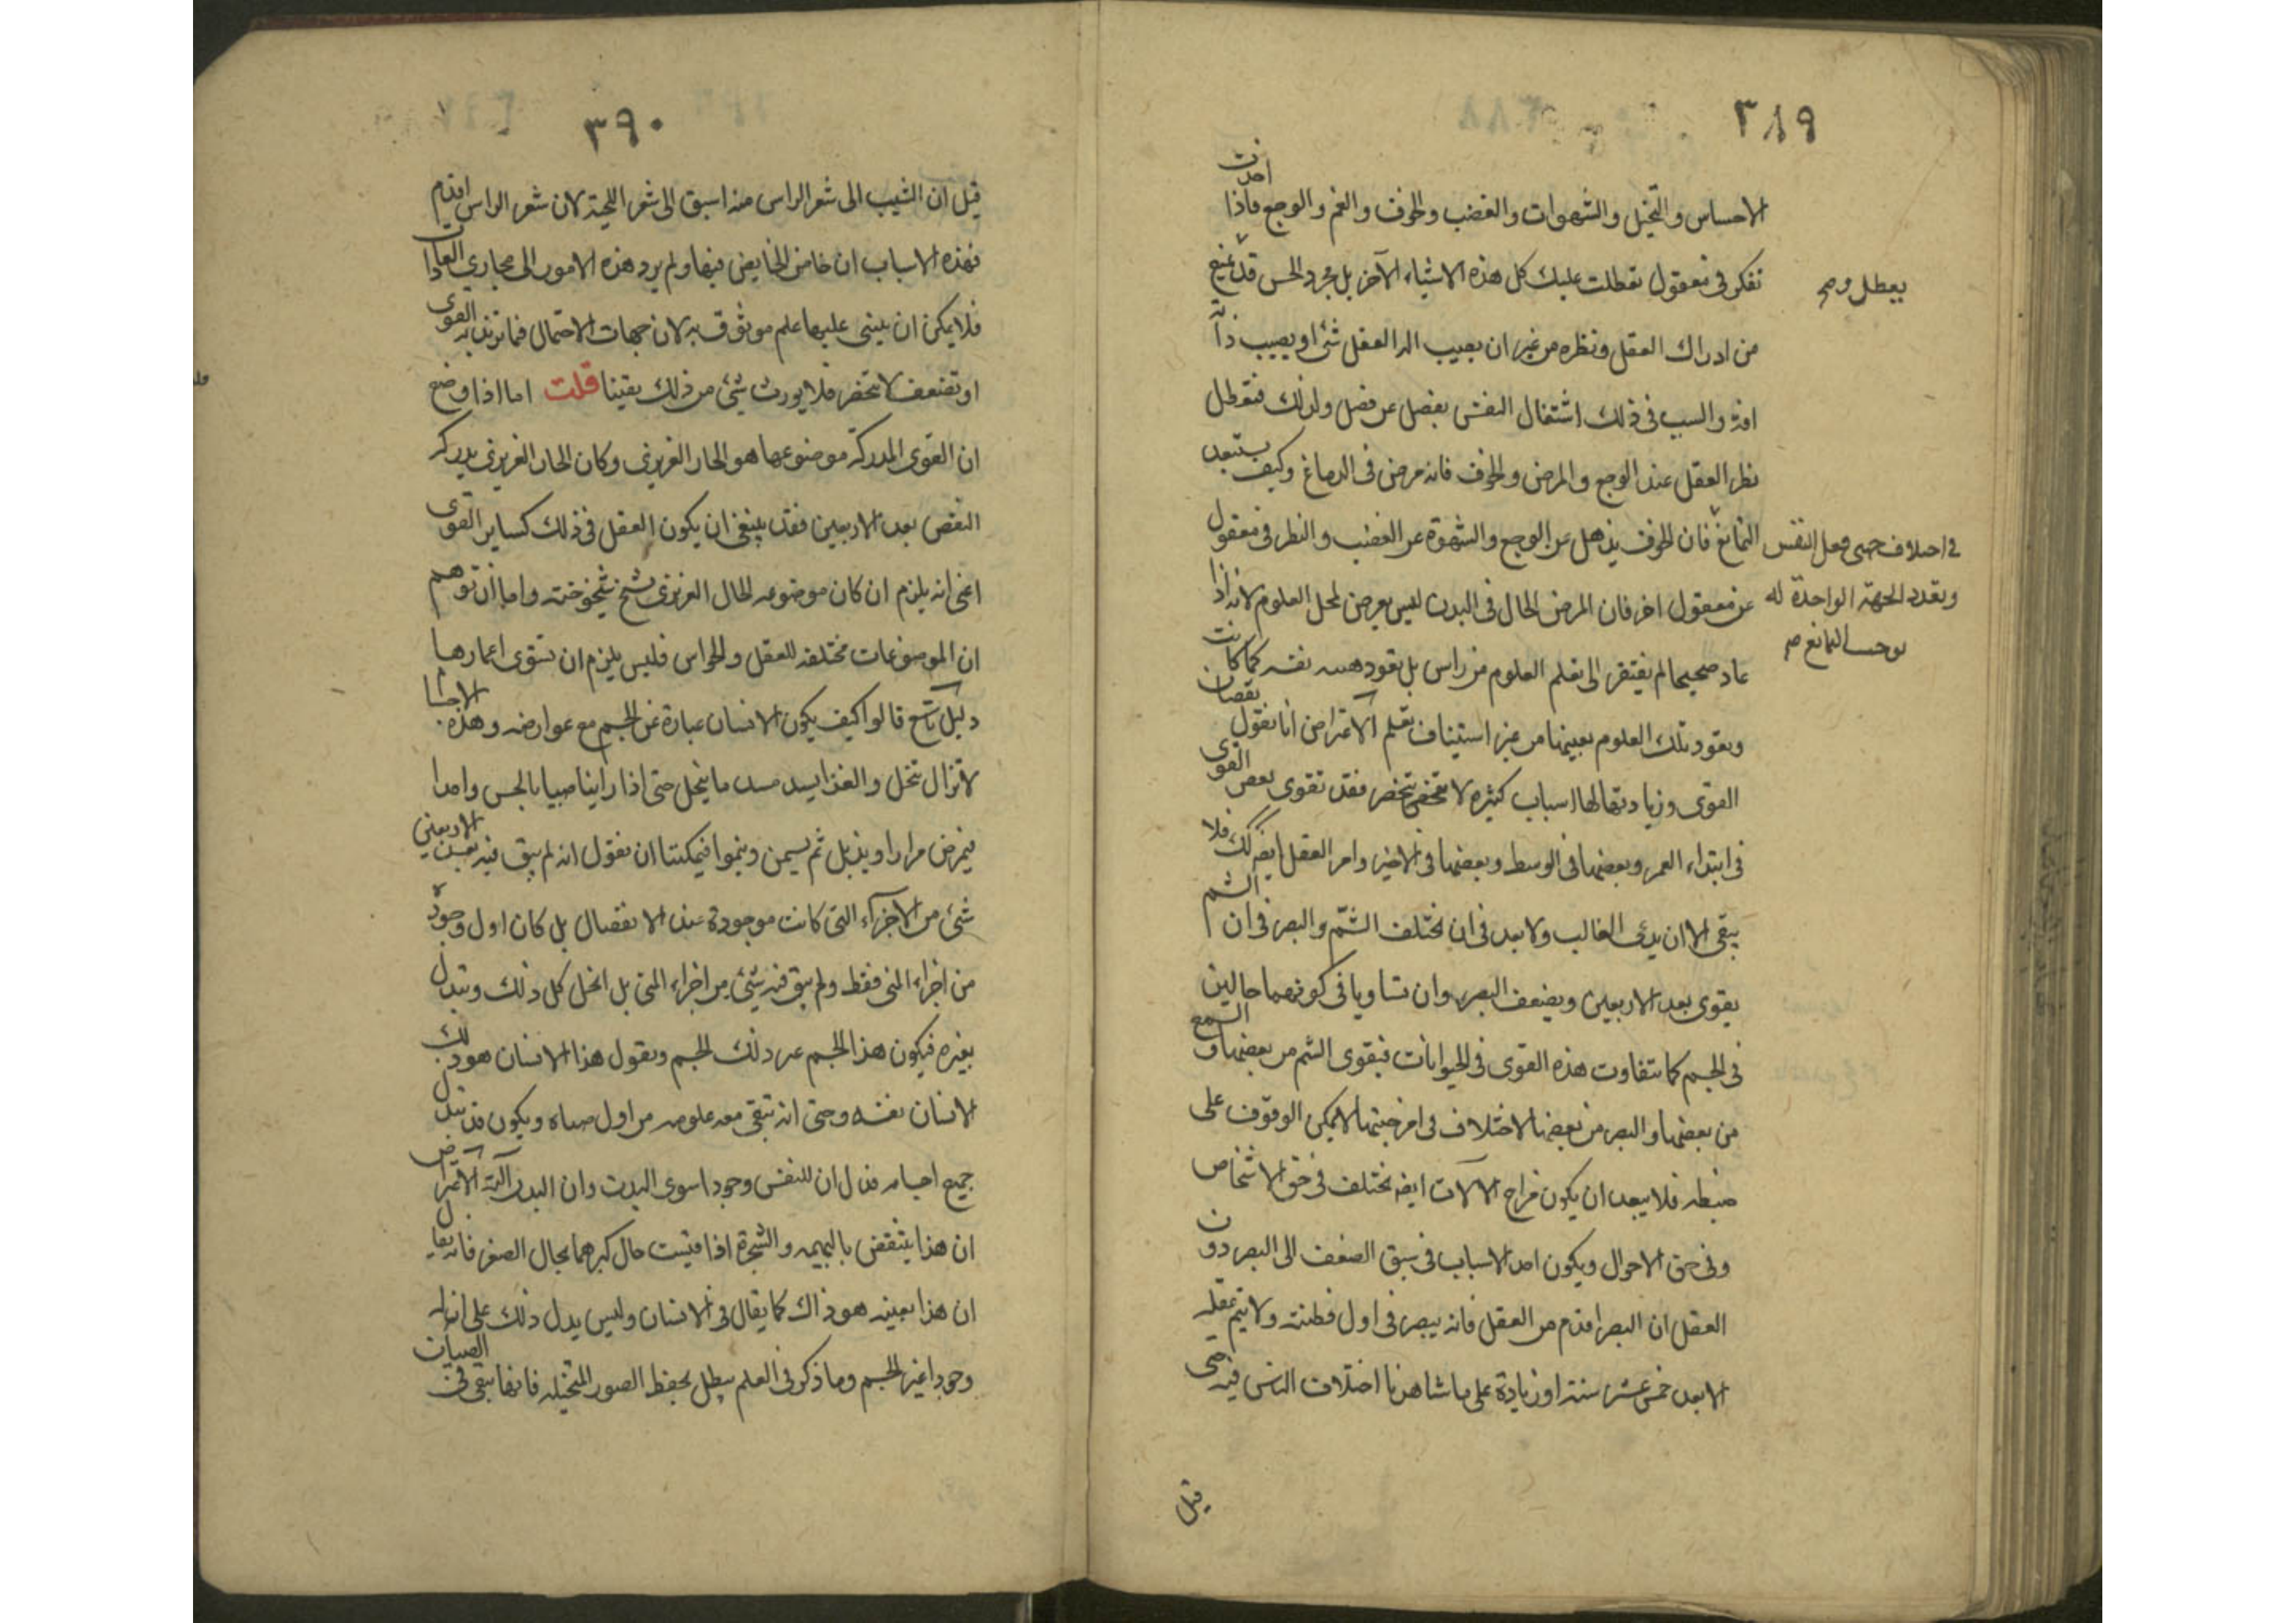 ٣٨٩
الاحساس والتخيل والشهوات والغضب والخوف والغم والوجع فاذا اخذت
تفكر فى معقول تعطلت عليك كل هذه الاشياء الآخر بل مجرد الحس قد يمنع
يعطل وصح
من ادراك العقل ونظره من غير ان يصيب الة العقل شئ او يصيب ذاته
افة والسبب فى ذلك اشتغال النفس بفعل عن فعل ولذلك فتعطل
نظر العقل عند الوجع والمرض والخوف فانه مرض فى الدماغ وكيف يستبعد
التمانع فان الخوف يذهل عن الوجع والشهوة عن الغضب والنظر فى معقول
فى اختلاف جهتى فعل النفس
وتعدد الجهة الواحدة له
يوجب التمانع صح
عن معقول اخر فان المرض الحال فى البدن ليس يعرض لمحل العلوم لانه اذا
عاد صحيحا لم يفتقر الى تعلم العلوم من راس بل يعود هيئة نفسه كما كانت
وتعود تلك العلوم بعينها من غير استيناف تعلم الاعتراض انا نقول نقصان
القوى وزيادتها لها اسباب كثيرة لا تنحصر فقد تقوى بعض القوى
فى ابتداء العمر وبعضها فى الوسط وبعضها فى الاخير وامر العقل ايضا كذلك فلا
يبقى الا ان يدعى الغالب ولا بعد فى ان يختلف الشم والبصر فى ان الشم
يقوى بعد الاربعين ويضعف البصر وان تساويا فى كونهما حالين
فى الجسم كما تتفاوت هذه القوى فى الحيوانات فيقوى الشم من بعضها والسمع
من بعضها والبصر من بعضها لاختلاف فى امزجتها لا يمكن الوقوف على
ضبطه فلا يبعد ان يكون مزاج الآلات ايضا يختلف فى حق الاشخاص
وفى حق الاحوال ويكون احد الاسباب فى سبق الضعف الى البصر دون
العقل ان البصر اقدم من العقل فانه يبصر فى اول فطنته ولا يتم عقله
الا بعد خمس عشر سنة او زيادة على ما شاهدنا اختلاف الناس فيه حتى
قيل
٣٩٠
قيل ان الشيب الى شعر الراس منه اسبق الى شعر اللحية لان شعر الراس اقدم
فهذه الاسباب ان خاض الخايض فيها ولم يرد هذه الامور الى مجارى العادات
فلا يمكن ان يبنى عليها علم موثوق به لان جهات الاحتمال فيما تزيد به القوى
او تضعف لا تنحصر فلا يورث شئ من ذلك يقينا قلت اما اذا وضع
ان القوى المدركة موضوعها هو الحار الغريزى وكان الحار الغريزى يدركه
النقص بعد الاربعين فقد ينبغى ان يكون العقل فى ذلك كساير القوى
اعنى انه يلزم ان كان موضوعه الحار الغريزى ان يشيخ بشيخوخته واما ان توهم
ان الموضوعات مختلفة للعقل والحواس فليس يلزم ان تستوى اعمارها
دليل تاسع قالوا كيف يكون الانسان عبارة عن الجسم مع عوارضه وهذه الاجسام
لا تزال تنحل والغذا يسد مسد ما ينحل حتى اذا راينا صبيا
فيمرض مرارا ويذبل ثم يسمن وينموا فيمكننا ان نقول انه لم يبق فيه بعد الاربعين
شئ من الاجزاء التى كانت موجودة عند الانفصال بل كان اول وجوده
من اجزاء المنى فقط ولم يبق فيه شئ من اجزاء المنى بل انحل كل ذلك وتبدل
بغيره فيكون هذا الجسم غير ذلك الجسم ونقول هذا الانسان هو ذلك
الانسان نفسه وحتى انه تبقى معه علومه من اول صباه ويكون قد تبدل
جميع اجسامه فدل ان للنفس وجودا سوى البدن وان البدن آلته الاعتراض
ان هذا ينتقض بالبهيمة والشجرة اذا قيست حال كبرهما بحال الصغر فانه يقال
ان هذا بعينه هو ذاك كما يقال فى الانسان وليس يدل ذلك على ان له
وجودا غير الجسم وما ذكر فى العلم يبطل بحفظ الصور المتخيلة فانها تبقى فى الصبيان